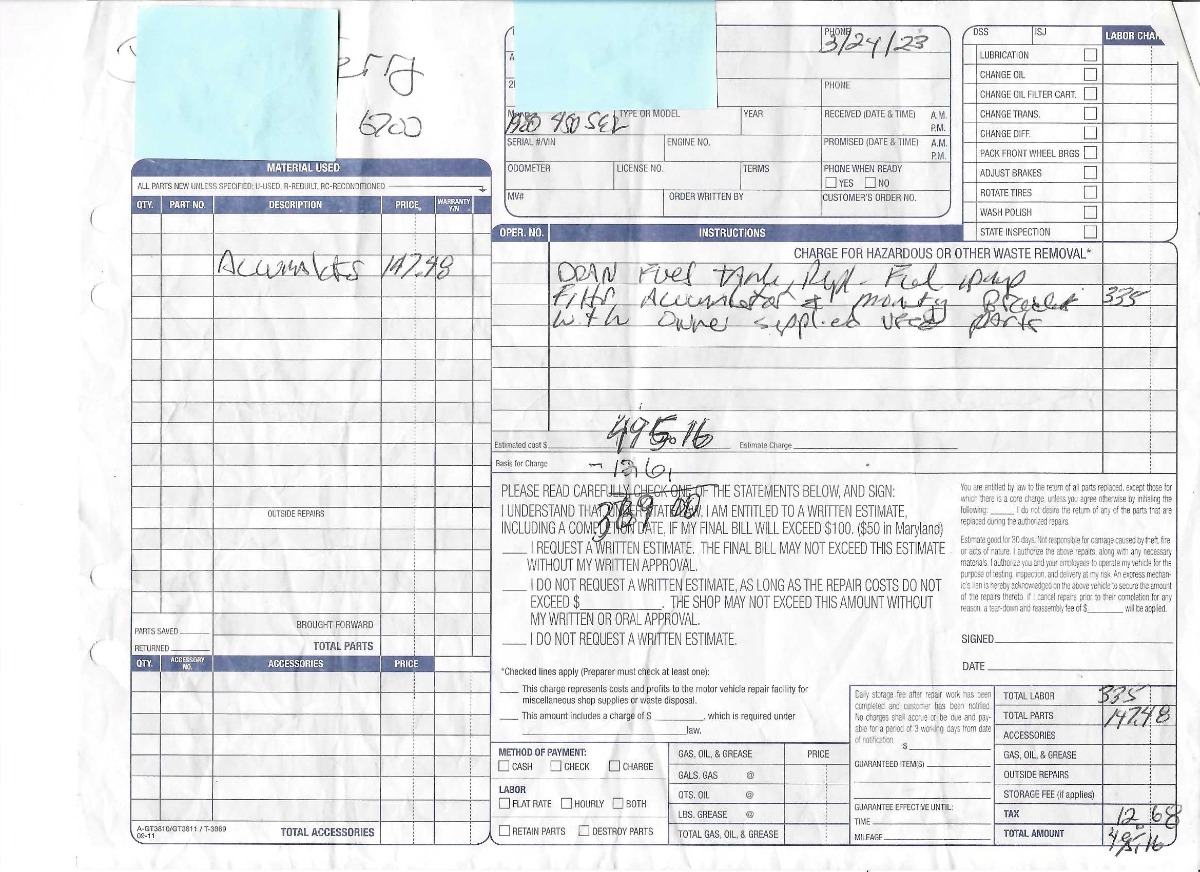 6700
PHONE
3/24/23
PHONE
TYPE OR MODEL
YEAR
RECEIVED (DATE & TIME) A.M. P.M.
1980 450 SEL
SERIAL #/VIN
ENGINE NO.
PROMISED (DATE & TIME) A.M. P.M.
ODOMETER
LICENSE NO.
TERMS
PHONE WHEN READY
YES NO
MV#
ORDER WRITTEN BY
CUSTOMER'S ORDER NO.
DSS ISJ LABOR CHAR
LUBRICATION
CHANGE OIL
CHANGE OIL FILTER CART.
CHANGE TRANS.
CHANGE DIFF.
PACK FRONT WHEEL BRGS
ADJUST BRAKES
ROTATE TIRES
WASH POLISH
STATE INSPECTION
MATERIAL USED
ALL PARTS NEW UNLESS SPECIFIED; U-USED, R-REBUILT, RC-RECONDITIONED
QTY. PART NO. DESCRIPTION PRICE WARRANTY Y/N
147.48
OUTSIDE REPAIRS
BROUGHT FORWARD
PARTS SAVED
RETURNED
TOTAL PARTS
QTY. ACCESSORY NO. ACCESSORIES PRICE
A-GT3810/GT3811 / T-3869
09-11
TOTAL ACCESSORIES
OPER. NO. INSTRUCTIONS
CHARGE FOR HAZARDOUS OR OTHER WASTE REMOVAL*
Fuel tank, Fuel pump
335
with owner supplied used parts
Estimated cost $ 495.16 Estimate Charge
Basis for Charge - 126.
PLEASE READ CAREFULLY, CHECK ONE OF THE STATEMENTS BELOW, AND SIGN:
I UNDERSTAND THAT, UNDER STATE LAW, I AM ENTITLED TO A WRITTEN ESTIMATE,
INCLUDING A COMPLETION DATE, IF MY FINAL BILL WILL EXCEED $100. ($50 in Maryland)
I REQUEST A WRITTEN ESTIMATE. THE FINAL BILL MAY NOT EXCEED THIS ESTIMATE
WITHOUT MY WRITTEN APPROVAL.
I DO NOT REQUEST A WRITTEN ESTIMATE, AS LONG AS THE REPAIR COSTS DO NOT
EXCEED $ . THE SHOP MAY NOT EXCEED THIS AMOUNT WITHOUT
MY WRITTEN OR ORAL APPROVAL.
I DO NOT REQUEST A WRITTEN ESTIMATE.
You are entitled by law to the return of all parts replaced, except those for
which there is a core charge, unless you agree otherwise by initialing the
following: I do not desire the return of any of the parts that are
replaced during the authorized repairs.
Estimate good for 30 days. Not responsible for damage caused by theft, fire
or acts of nature. I authorize the above repairs, along with any necessary
materials. I authorize you and your employees to operate my vehicle for the
purpose of testing, inspection, and delivery at my risk. An express mechan-
ic's lien is hereby acknowledged on the above vehicle to secure the amount
of the repairs thereto. If I cancel repairs prior to their completion for any
reason, a tear-down and reassembly fee of $ will be applied.
SIGNED
DATE
*Checked lines apply (Preparer must check at least one):
This charge represents costs and profits to the motor vehicle repair facility for
miscellaneous shop supplies or waste disposal.
This amount includes a charge of $ , which is required under
law.
METHOD OF PAYMENT:
CASH CHECK CHARGE
LABOR
FLAT RATE HOURLY BOTH
RETAIN PARTS DESTROY PARTS
GAS, OIL, & GREASE PRICE
GALS. GAS @
QTS. OIL @
LBS. GREASE @
TOTAL GAS, OIL, & GREASE
Daily storage fee after repair work has been
completed and customer has been notified.
No charges shall accrue or be due and pay-
able for a period of 3 working days from date
of notification. $
GUARANTEED ITEM(S)
GUARANTEE EFFECTIVE UNTIL:
TIME
MILEAGE
TOTAL LABOR 335
TOTAL PARTS 147.48
ACCESSORIES
GAS, OIL, & GREASE
OUTSIDE REPAIRS
STORAGE FEE (if applies)
TAX 12 68
TOTAL AMOUNT 495.16